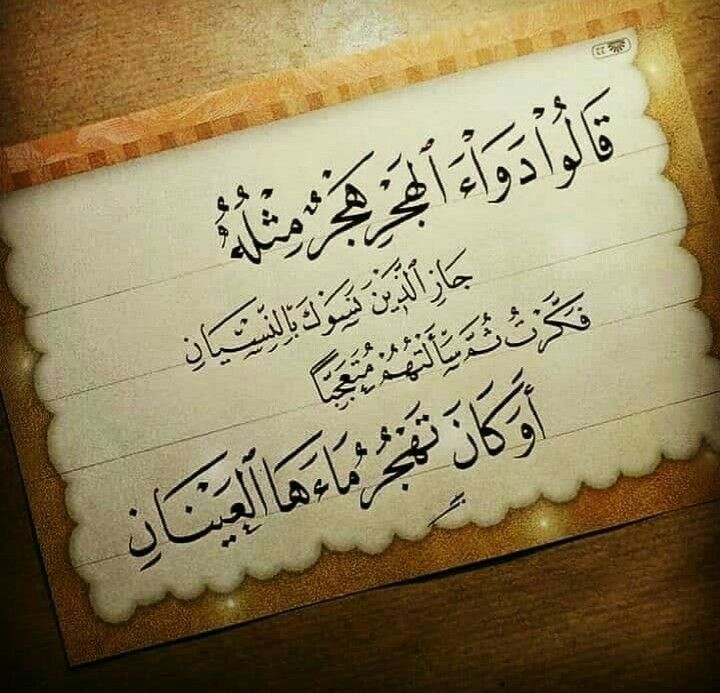 قَالُوا دَوَاءُ الهَجْرِ هَجْرٌ مِثْلُهُ
جَازِ الَّذِينَ نَسَوْكَ بِالنِّسْيَانِ
فَكَّرْتُ ثُمَّ سَأَلْتُهُمْ مُتَعَجِّبًا
أَوَ كَانَ تَهْجُرُ مَاءَهَا العَيْنَانِ